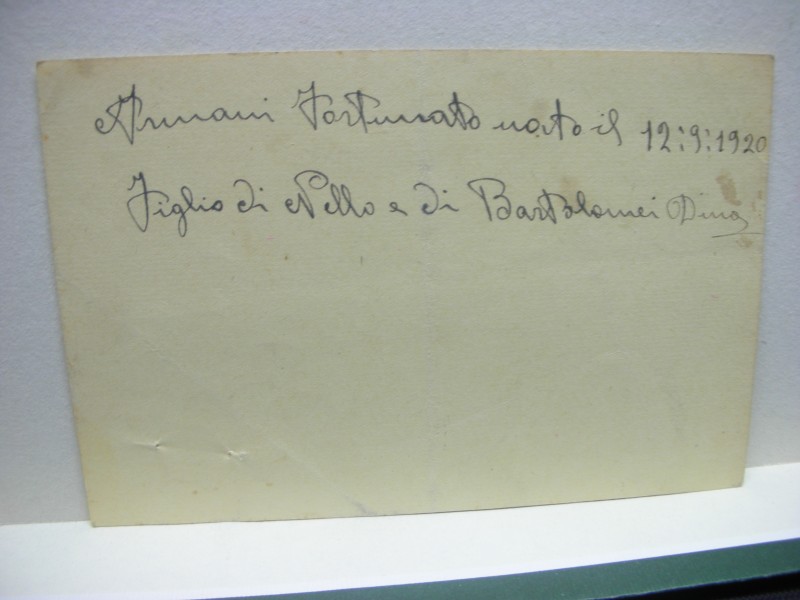 Armani Fortunato nato il 12:9:1920
Figlio di Nello e di Bartolomei Dina